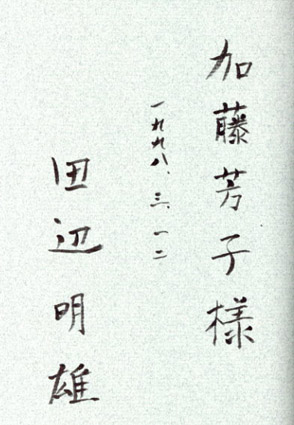 加藤芳子様
一九九八、三、一二
田辺明雄